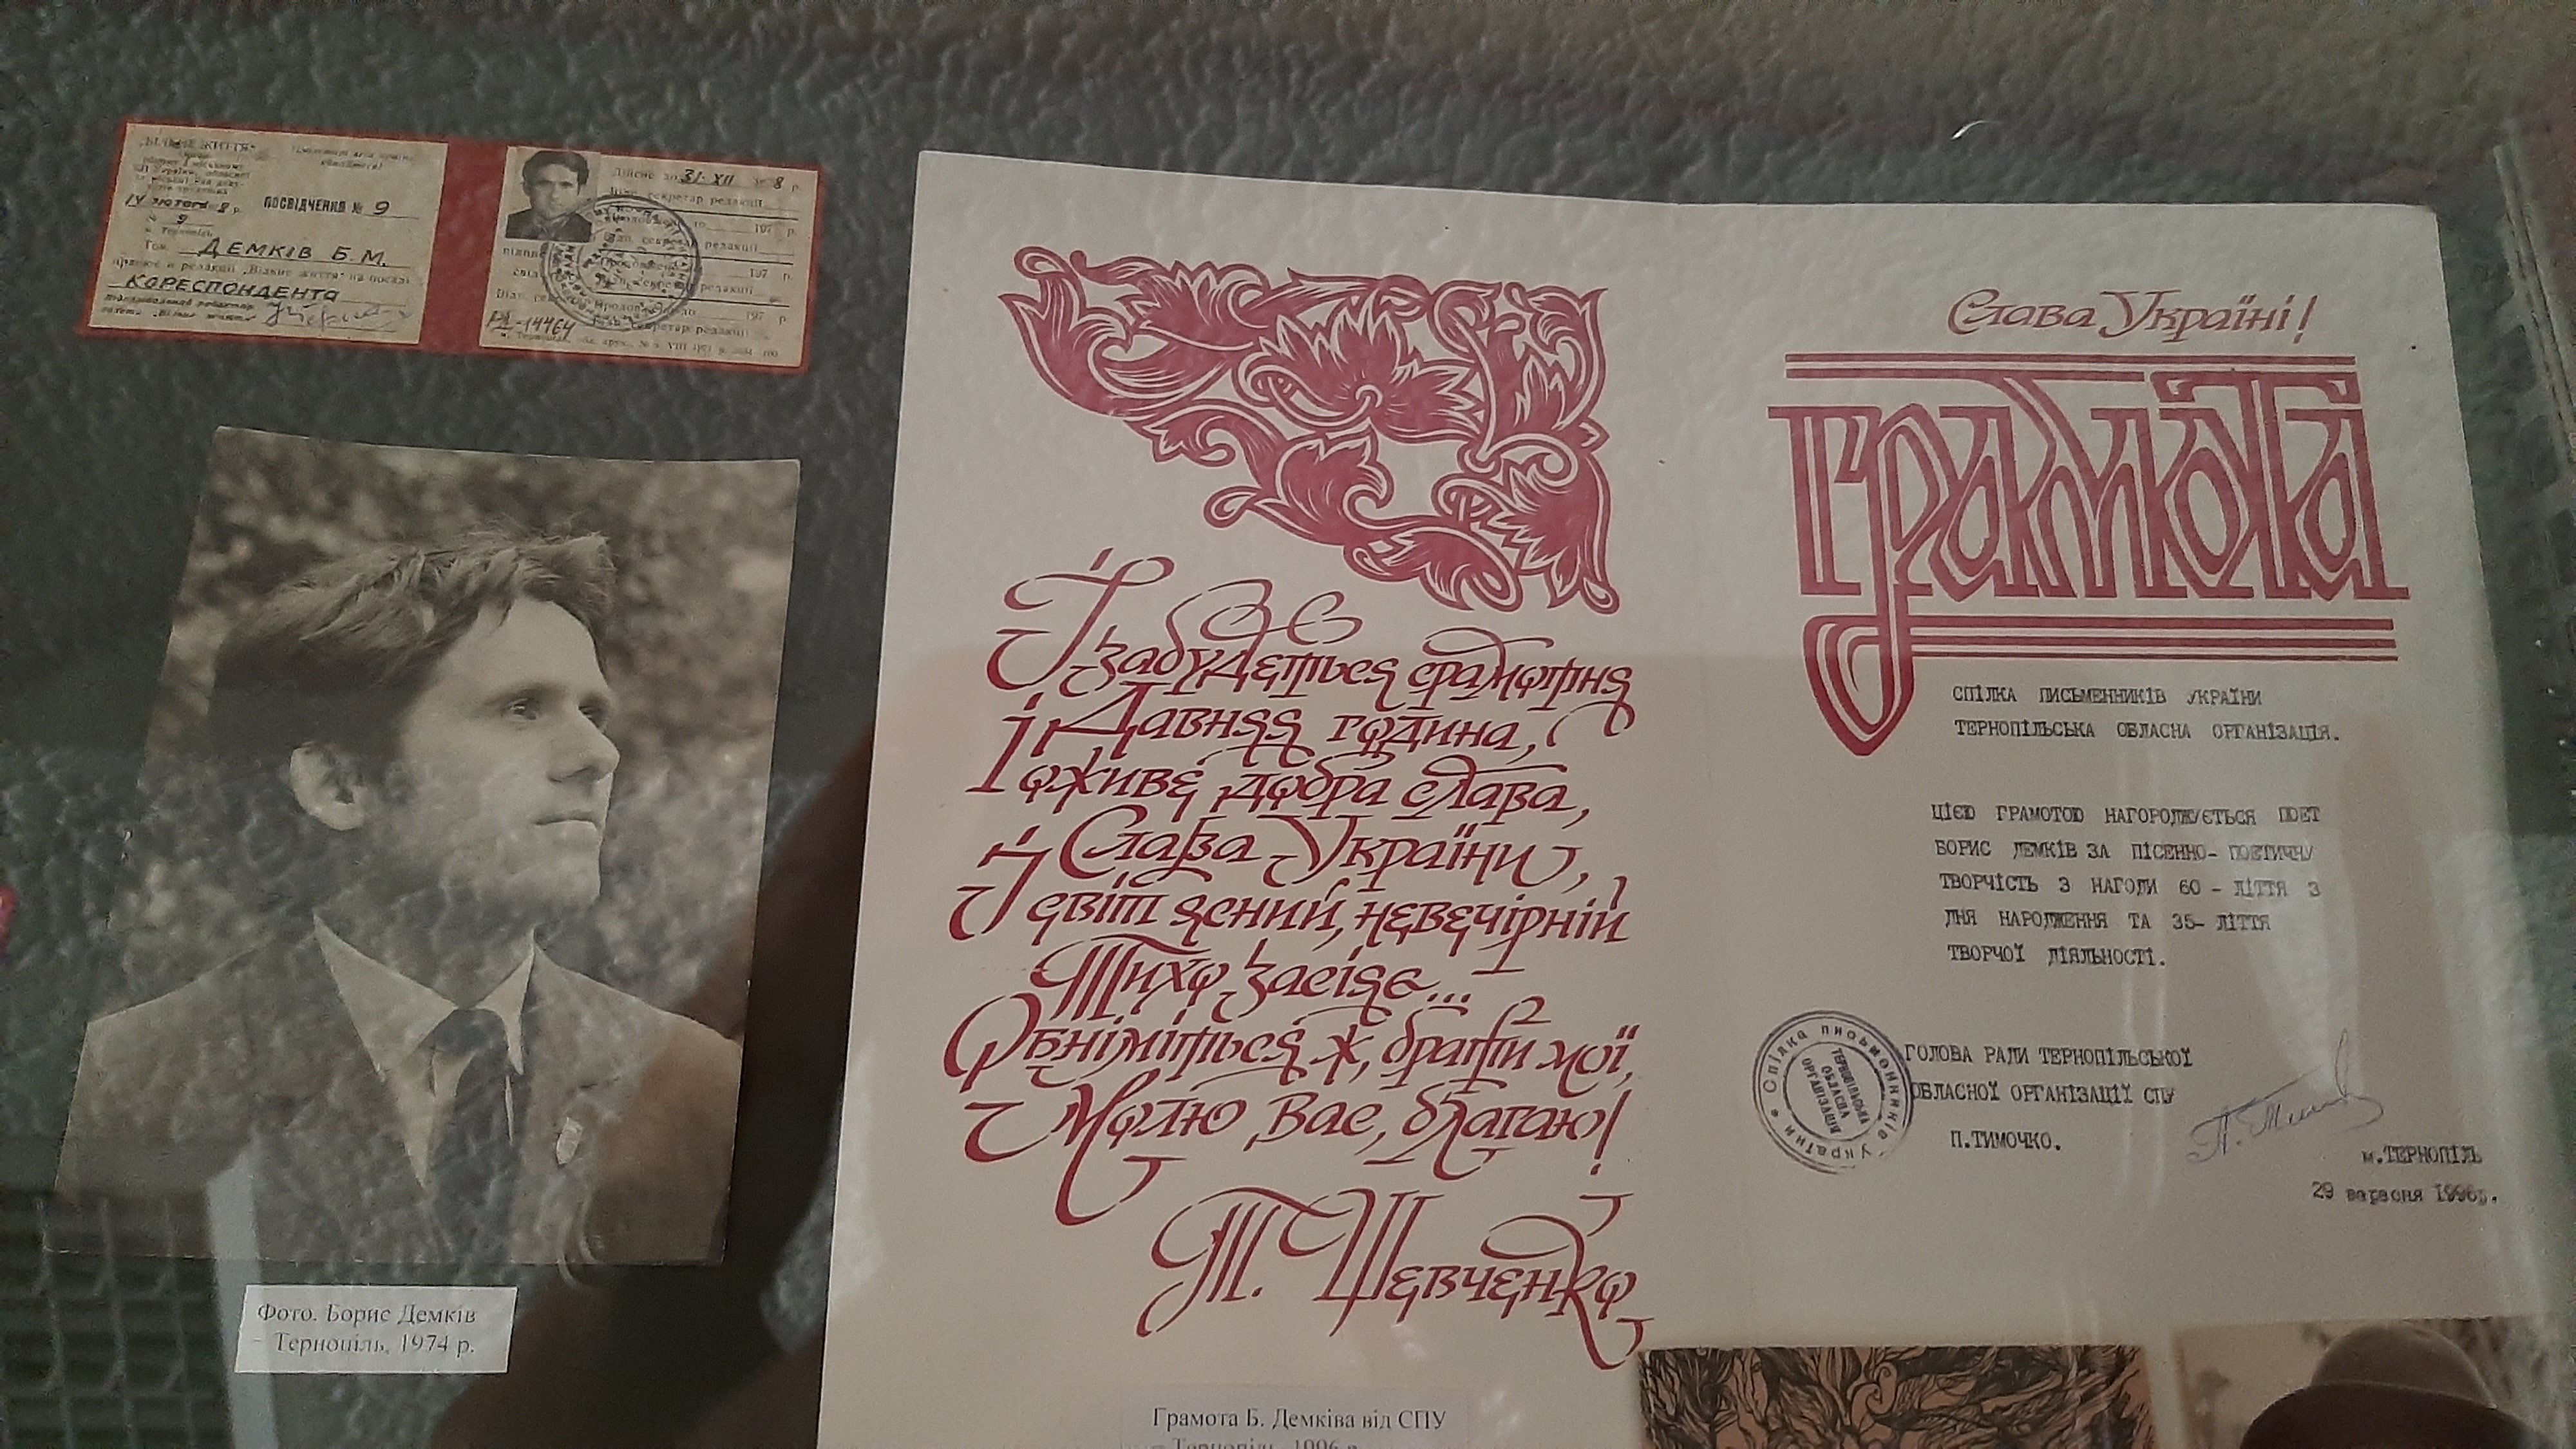 „ВІЛЬНЕ ЖИТТЯ"
ПОСВІДЧЕННЯ № 9
9
м. Тернопіль
Тов. ДЕМКІВ Б. М.
працює в редакції „Вільне життя" на посаді
КОРЕСПОНДЕНТА
Дійсне до 31. XII 8 р.
секретар редакції
197 р.
секретар редакції
197 р.
редакції
197 р.
секретар редакції
Фото. Борис Демків
– Тернопіль, 1974 р.
І забудеться срамотня
Давняя година,
І оживе добра слава,
Слава України,
І світ ясний, невечірній
Тихо засіяє...
Обніміться ж, брати мої,
Молю вас, благаю!
Т. Шевченко
Грамота Б. Демківа від СПУ
– Тернопіль, 1996 р.
Слава Україні!
Грамота
СПІЛКА ПИСЬМЕННИКІВ УКРАЇНИ
ТЕРНОПІЛЬСЬКА ОБЛАСНА ОРГАНІЗАЦІЯ.
ЦІЄЮ ГРАМОТОЮ НАГОРОДЖУЄТЬСЯ ПОЕТ
БОРИС ДЕМКІВ ЗА ПІСЕННО- ПОЕТИЧНУ
ТВОРЧІСТЬ З НАГОДИ 60 - ЛІТТЯ З
ДНЯ НАРОДЖЕННЯ ТА 35- ЛІТТЯ
ТВОРЧОЇ ДІЯЛЬНОСТІ.
Спілка письменників україни
ТЕРНОПІЛЬСЬКА
ОБЛАСНА
ОРГАНІЗАЦІЯ
ГОЛОВА РАДИ ТЕРНОПІЛЬСЬКОЇ
ОБЛАСНОЇ ОРГАНІЗАЦІЇ СПУ
П.ТИМОЧКО.
м.ТЕРНОПІЛЬ
29 вересня 1996р.